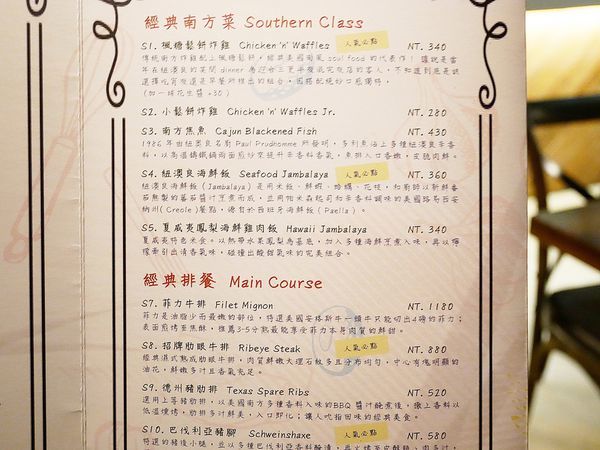 經典南方菜 Southern Class
S1. 楓糖鬆餅炸雞 Chicken 'n' Waffles 人氣必點 NT. 340
傳統南方炸雞配上楓糖鬆餅，經典美國南風 soul food 的代表作！據說是當
年在紐澳良的某間 dinner 為迎合三更半夜派完反店的客人，不知道到底是該
選擇吃宵夜還是早餐所推出的組合，因搭配絕妙口感獨特，
(加一球花生醬 +30)
S2. 小鬆餅炸雞 Chicken 'n' Waffles Jr. NT. 280
S3. 南方焦魚 Cajun Blackened Fish NT. 430
1986 年由紐奧良名廚 Paul Prudhomme 所發明，多利魚沾上多種紐澳良辛香
料，以高溫鑄鐵鍋兩面煎炒來提升辛香料香氣，魚排入口香嫩，皮脆肉鮮。
S4. 紐澳良海鮮飯 Seafood Jambalaya 人氣必點 NT. 360
紐澳良海鮮飯 (Jambalaya) 是用米飯、鮮蝦、蛤蠣、花枝，和廚師以新鮮番
茄熬製的蕃茄醬汁烹煮而成，並用帕米森起司和辛香料調味的美國路易西安
納州 (Creole) 餐點，源自於西班牙海鮮飯 (Paella)。
S5. 夏威夷鳳梨海鮮雞肉飯 Hawaii Jambalaya NT. 340
夏威夷特色米食。以熱帶水果鳳梨為基底，加入多種海鮮烹煮入味，再以檸
檬牽引出清香氣味，碰撞出酸甜氣味的完美組合。
經典排餐 Main Course
S7. 菲力牛排 Filet Mignon NT. 1180
菲力是油脂少而最嫩的部位，特選美國安格斯牛一頭牛只能切出4磅的菲力；
表面煎烤至焦酥，推薦3-5分熟最能享受菲力本身肉質的鮮甜。
S8. 招牌肋眼牛排 Ribeye Steak 人氣必點 NT. 880
經典濕式熟成肋眼牛排，肉質鮮嫩大理石紋多且分布均勻，中心有塊明顯的
油花，鮮嫩多汁且香氣充足。
S9. 德州豬肋排 Texas Spare Ribs NT. 520
選用上等豬肋排，以美國南方多種香料入味的BBQ 醬汁醃煮後，撒上香料以
低溫燻烤，肋排多汁鮮美，入口即化；讓人吮指回味的經典美食。
S10. 巴伐利亞豬腳 Schweinshaxe 人氣必點 NT. 580